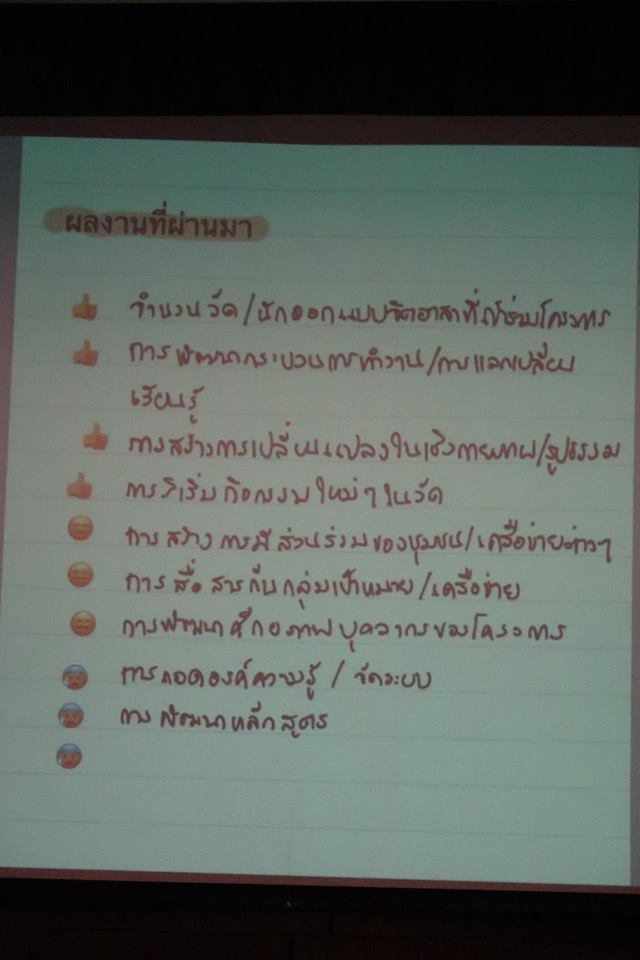 ผลงานที่ผ่านมา
จำนวนวัด/นักออกแบบจิตอาสาที่เข้าร่วมโครงการ
การพัฒนากระบวนการทำงาน/การแลกเปลี่ยน
เรียนรู้
การสร้างการเปลี่ยนแปลงในเชิงกายภาพ/รูปธรรม
การริเริ่มกิจกรรมใหม่ๆในวัด
การสร้างการมีส่วนร่วมของชุมชน/เครือข่ายต่างๆ
การสื่อสารกับกลุ่มเป้าหมาย/เครือข่าย
การพัฒนาศักยภาพบุคลากรของโครงการ
การถอดองค์ความรู้ / จัดระบบ
การพัฒนาหลักสูตร